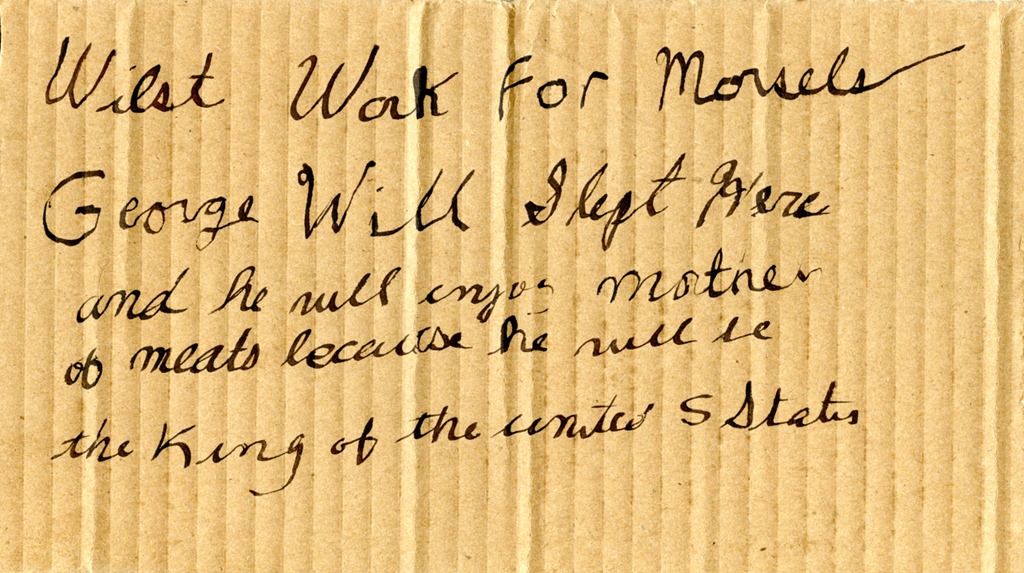 Wilst Work For Morsels
George Will Slept Here
and he will enjoy mother
of meats because he will be
the King of the united S States